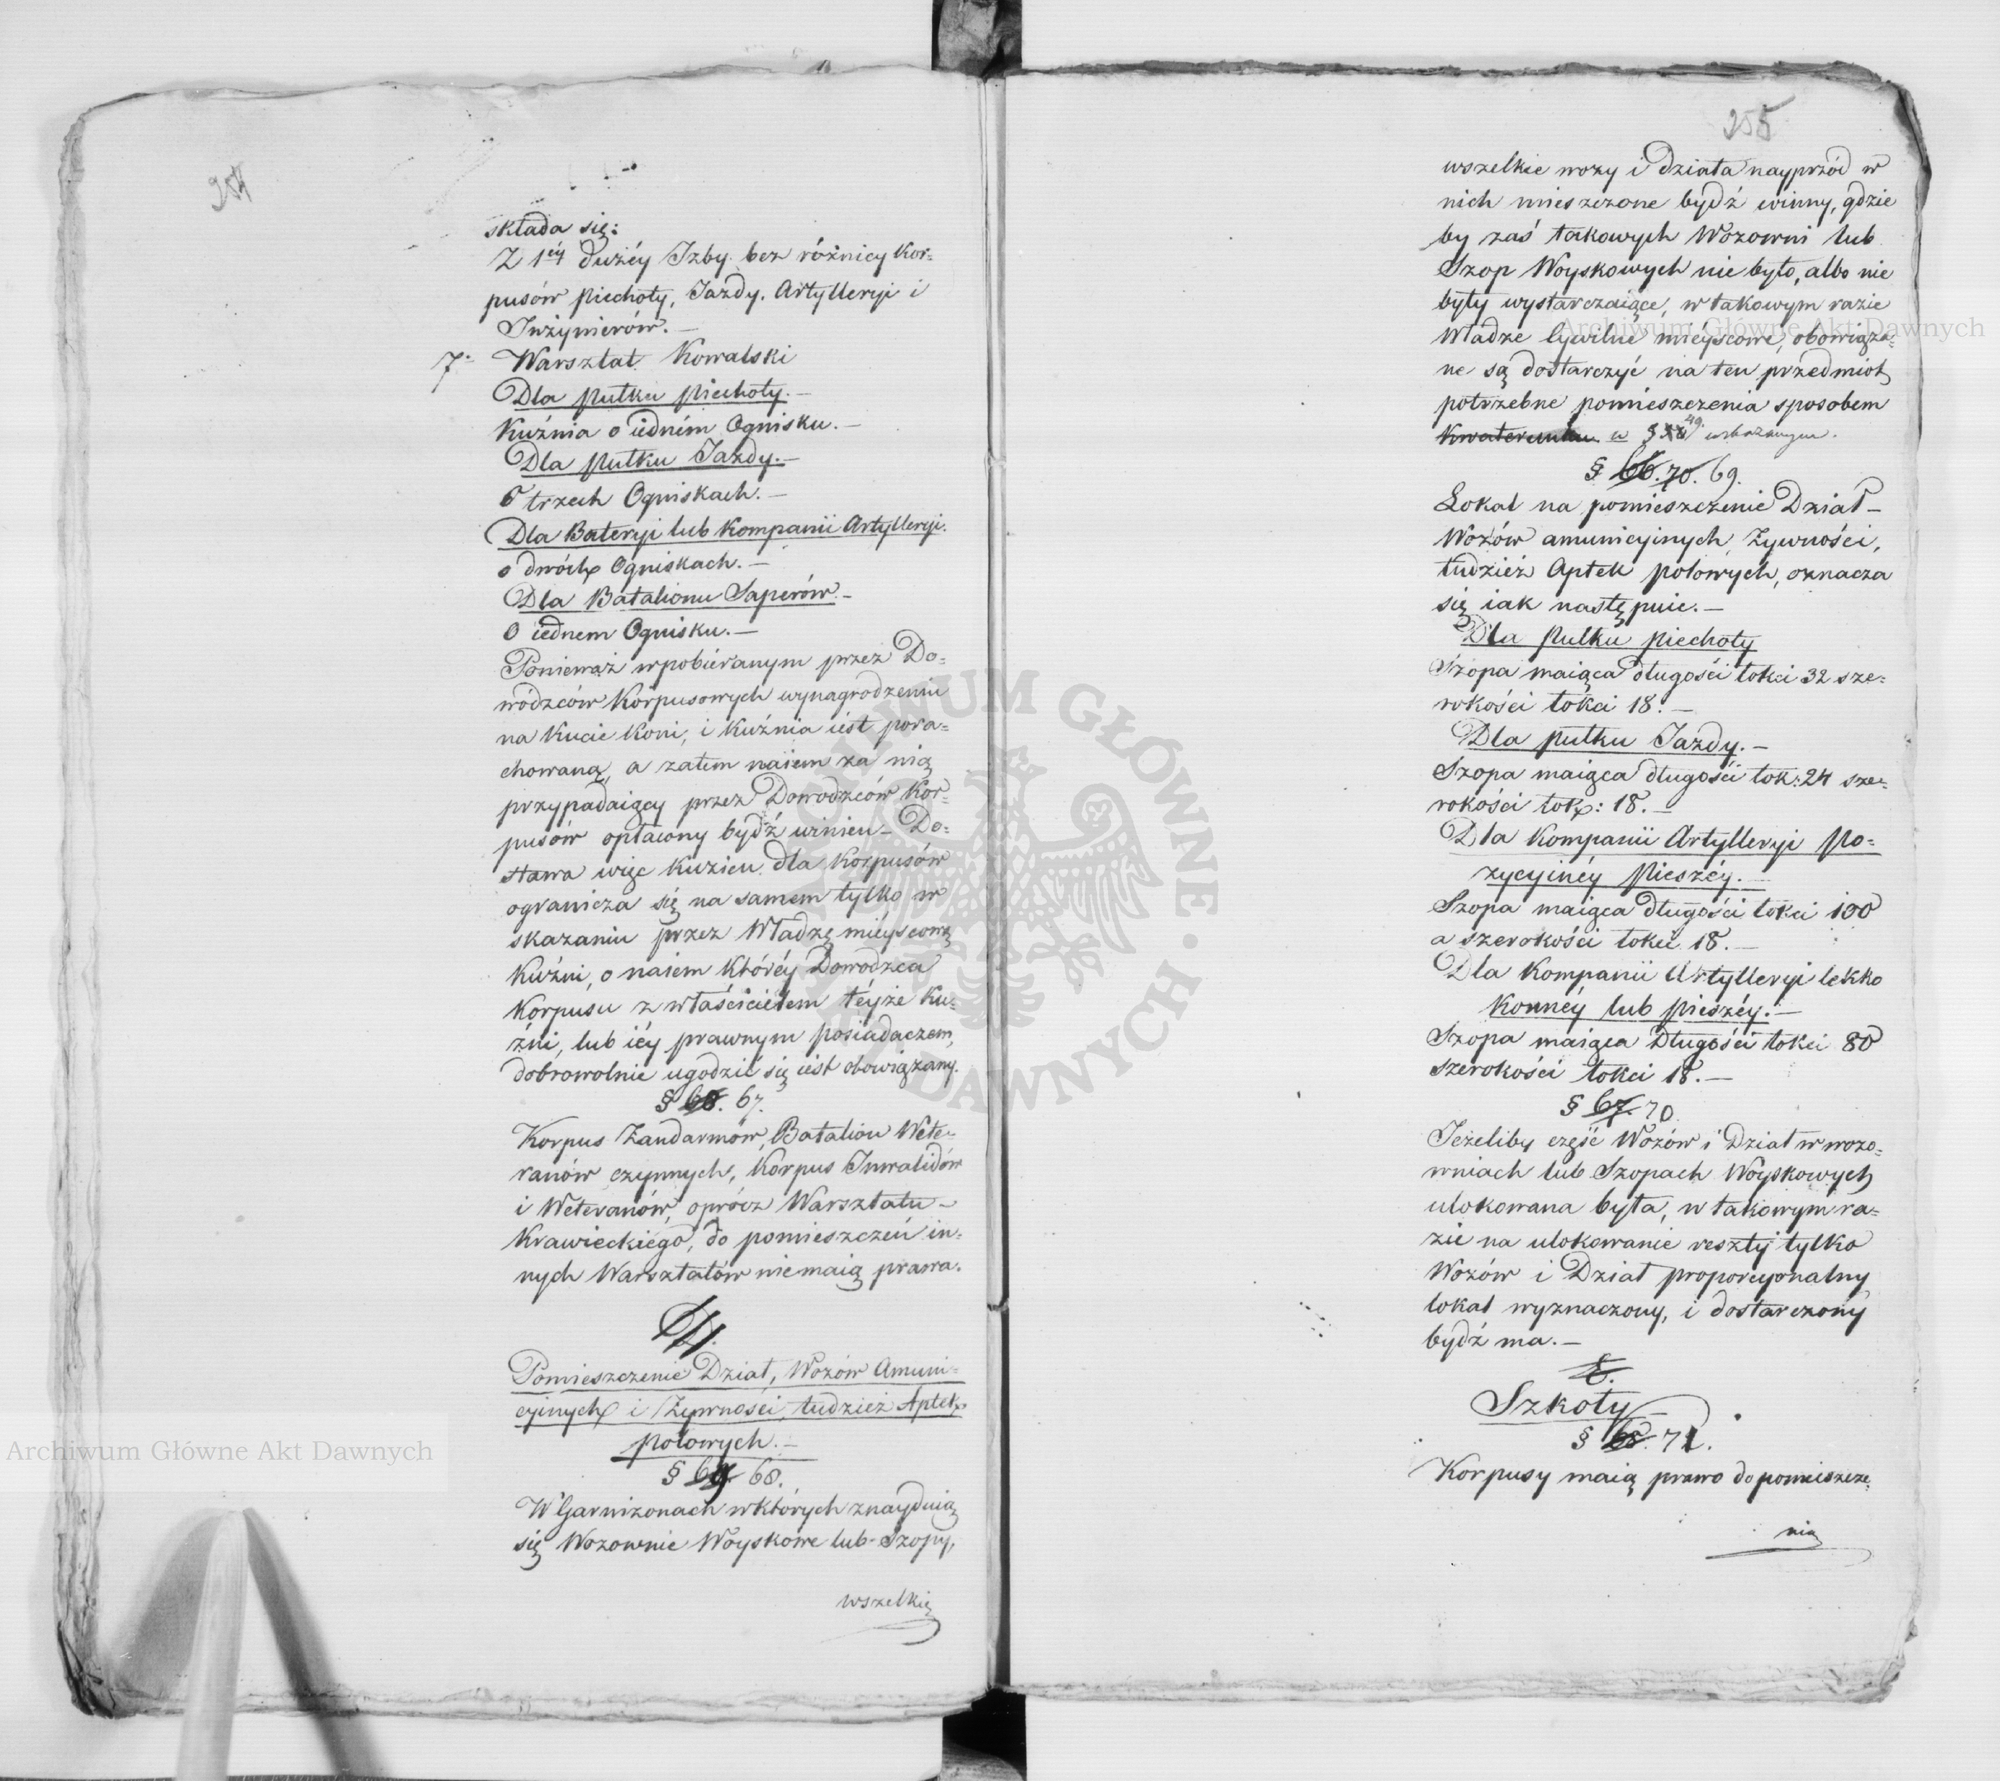 254
składa się:
Z 1éy dużéy Izby bez różnicy Kor-
pusów Piechoty, Jazdy, Artylleryi i
Inżynierów. —
7. Warsztat Kowalski
Dla Pułku Piechoty. —
Kuźnia o iedném Ognisku. —
Dla Pułku Jazdy. —
O trzech Ogniskach. —
Dla Bateryi lub Kompanii Artylleryi.
o dwóch Ogniskach. —
Dla Batalionu Saperów. —
O iednem Ognisku. —
Ponieważ w pobiéranym przez Do-
wódzców Korpusowych wynagrodzeniu
na Kucie Koni, i Kuźnia iest pora-
chowaną, a zatem naiem za nią
przypadaiący przez Dowodzców Kor-
pusów opłacony bydź winien — Do-
stawa więc Kuzien dla Korpusów
ogranicza się na samem tylko w
skazaniu przez Władzę mieyscową
Kuźni, o naiem któréy Dowodzca
Korpusu z właścicielem téyże Ku-
źni, lub iéy prawnym posiadaczem,
dobrowolnie ugodzić się iest obowiązany.
§ 67.
Korpus Żandarmów, Batalion Wete-
ranów czynnych, Korpus Inwalidów
i Weteranów, oprócz Warsztatu —
Krawieckiego, do pomieszczeń in-
nych Warsztatów nie maią prawa.
D.
Pomieszczenie Dział, Wozów Amuni-
cyinych i Żywności, tudzież Aptek
polowych. —
§ 68.
W Garnizonach w których znayduią
się Wozownie Woyskowe lub Szopy,
wszelkie
255
wszelkie wozy i Działa nayprzód w
nich mieszczone bydź winny, gdzie
by zaś takowych Wozowni lub
Szop Woyskowych nie było, albo nie
były wystarczaiące, w takowym razie
Władze Cywilne mieyscowe, obowiąza-
ne są dostarczyć na ten przedmiot
potrzebne pomieszczenia sposobem
Kwaterunku w § 49. wskazanym.
§ 66. 70. 69.
Lokal na pomieszczenie Dział —
Wozów amunicyinych, Żywności,
tudzież Aptek polowych, oznacza
się iak następuie. —
Dla Pułku Piechoty
Szopa maiąca długości łokci 32 sze-
rokości łokci 18. —
Dla Pułku Jazdy. —
Szopa maiąca długości łok: 24 sze-
rokości łok: 18. —
Dla Kompanii Artylleryi Po-
zycyinéy Pieszéy. —
Szopa maiąca długości łokci 100
a szerokości łokci 18. —
Dla Kompanii Artylleryi lekko
Konnéy lub Pieszéy. —
Szopa maiąca Długości łokci 80
szerokości łokci 18. —
§ 67. 70.
Jeżeliby część Wozów i Dział w wozo-
wniach lub Szopach Woyskowych
ulokowana była, w takowym ra-
zie na ulokowanie reszty tylko
Wozów i Dział proporcyonalny
lokal wyznaczony, i dostarczony
bydź ma. —
E.
Szkoły
§ 68. 71.
Korpusy maią prawo do pomieszcze-
nia
Archiwum Główne Akt Dawnych
Archiwum Główne Akt Dawnych
ARCHIWUM GŁÓWNE AKT DAWNYCH